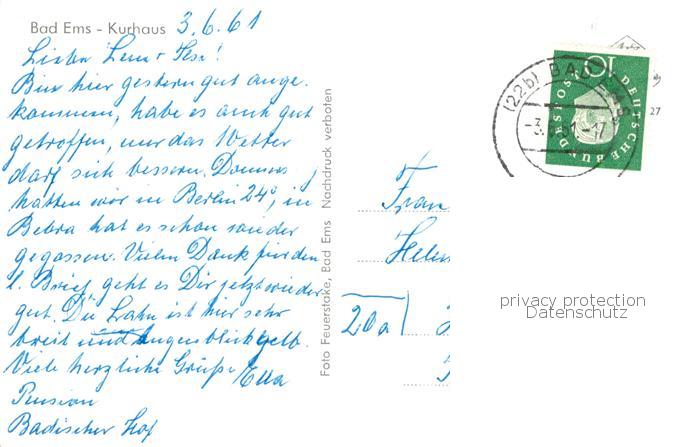 Bad Ems - Kurhaus 3.6.61
Bin hier gestern gut ange-
kommen, habe es auch gut
getroffen, nur das Wetter
darf sich bessern. Donners,
hatten wir in Berlin 24°, in
Bebra hat es schon wieder
gegossen. Vielen Dank für den
l. Brief, geht es Dir jetzt wieder
gut. Die Lahn ist hier sehr
breit und augenblickl. gelb.
Viele herzliche Grüße Ella
Pension
Badischer Hof
Foto Feuerstake, Bad Ems Nachdruck verboten
DEUTSCHE BUNDESPOST
10
(22b) BAD EMS
-3.6.61-17
27
Frau
Helen
20a
privacy protection
Datenschutz